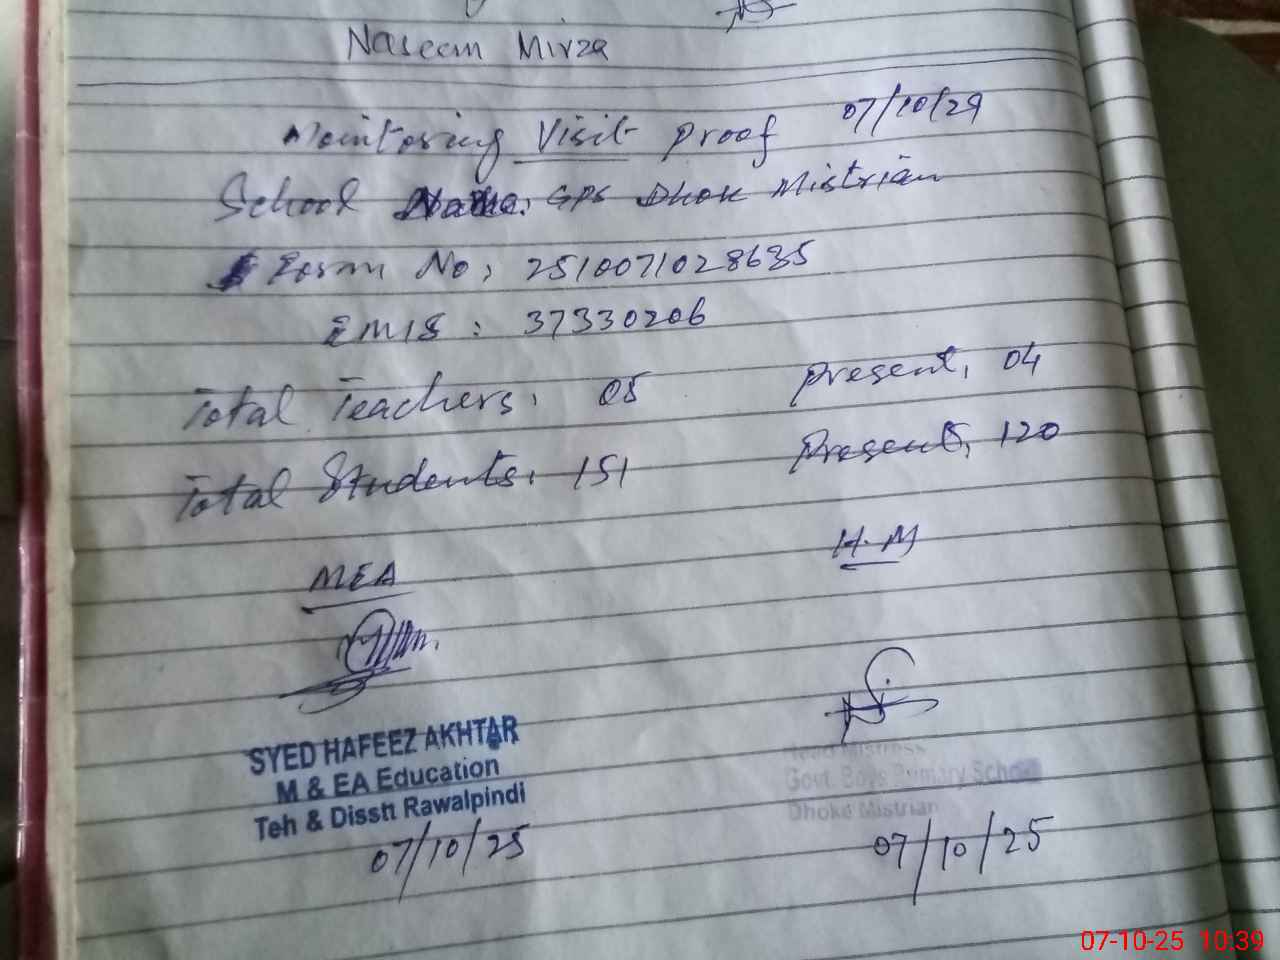 Naseem Mirza
Monitoring Visit proof 07/10/29
School Name: GPS Dhok Mistrian
Form No, 2510071028635
EMIS : 37330206
Total Teachers, 05 Present, 04
Total Students, 151 Present, 120
MEA H.M
SYED HAFEEZ AKHTAR
M & EA Education
Teh & Disstt Rawalpindi
Head Mistress
Govt. Boys Primary School
Dhoke Mistrian
07/10/25 07/10/25
07-10-25 10:39